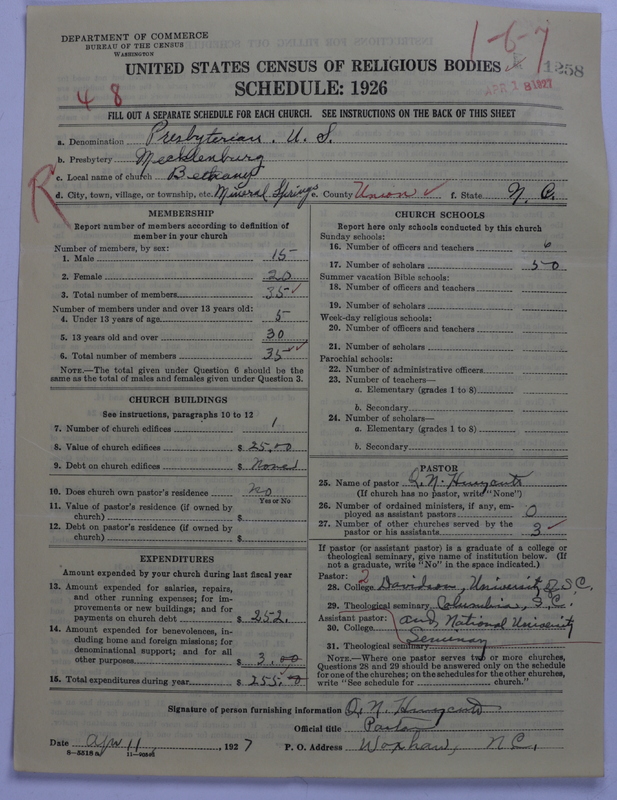 DEPARTMENT OF COMMERCE
BUREAU OF THE CENSUS
WASHINGTON
1-6-7
1258
APR 18 1927
UNITED STATES CENSUS OF RELIGIOUS BODIES
SCHEDULE: 1926
4 8
FILL OUT A SEPARATE SCHEDULE FOR EACH CHURCH. SEE INSTRUCTIONS ON THE BACK OF THIS SHEET
a. Denomination Presbyterian. U. S.
b. Presbytery Mecklenburg
c. Local name of church Bethany
R
d. City, town, village, or township, etc. Mineral Springs e. County Union ✓ f. State N. C.
MEMBERSHIP
Report number of members according to definition of
member in your church
Number of members, by sex:
1. Male 15
2. Female 20
3. Total number of members 35 ✓
Number of members under and over 13 years old:
4. Under 13 years of age 5
5. 13 years old and over 30
6. Total number of members 35 ✓✓
NOTE.—The total given under Question 6 should be the
same as the total of males and females given under Question 3.
CHURCH BUILDINGS
See instructions, paragraphs 10 to 12
7. Number of church edifices 1
8. Value of church edifices $ 25.00
9. Debt on church edifices $
10. Does church own pastor's residence No
Yes or No
11. Value of pastor's residence (if owned by
church) $
12. Debt on pastor's residence (if owned by
church) $
EXPENDITURES
Amount expended by your church during last fiscal year
13. Amount expended for salaries, repairs,
and other running expenses; for im-
provements or new buildings; and for
payments on church debt $ 252.
14. Amount expended for benevolences, in-
cluding home and foreign missions; for
denominational support; and for all
other purposes $ 3.00
15. Total expenditures during year $ 255.00
CHURCH SCHOOLS
Report here only schools conducted by this church
Sunday schools:
16. Number of officers and teachers 6
17. Number of scholars 50
Summer vacation Bible schools:
18. Number of officers and teachers
19. Number of scholars
Week-day religious schools:
20. Number of officers and teachers
21. Number of scholars
Parochial schools:
22. Number of administrative officers
23. Number of teachers—
a. Elementary (grades 1 to 8)
b. Secondary
24. Number of scholars—
a. Elementary (grades 1 to 8)
b. Secondary
PASTOR
25. Name of pastor
(If church has no pastor, write "None")
26. Number of ordained ministers, if any, em-
ployed as assistant pastors 0
27. Number of other churches served by the
pastor or his assistants 3 ✓
If pastor (or assistant pastor) is a graduate of a college or
theological seminary, give name of institution below. (If
not a graduate, write "No" in the space indicated.)
Pastor: 2
28. College Davidson, University of S.C.
29. Theological seminary Columbia, S.C.
Assistant pastor: and National University
30. College
Seminary
31. Theological seminary
NOTE.—Where one pastor serves two or more churches,
Questions 28 and 29 should be answered only on the schedule
for one of the churches; on the schedules for the other churches,
write "See schedule for church."
Signature of person furnishing information
Official title Pastor
Date Apr 11, 1927 P. O. Address Waxhaw, N.C.
8-5518 a